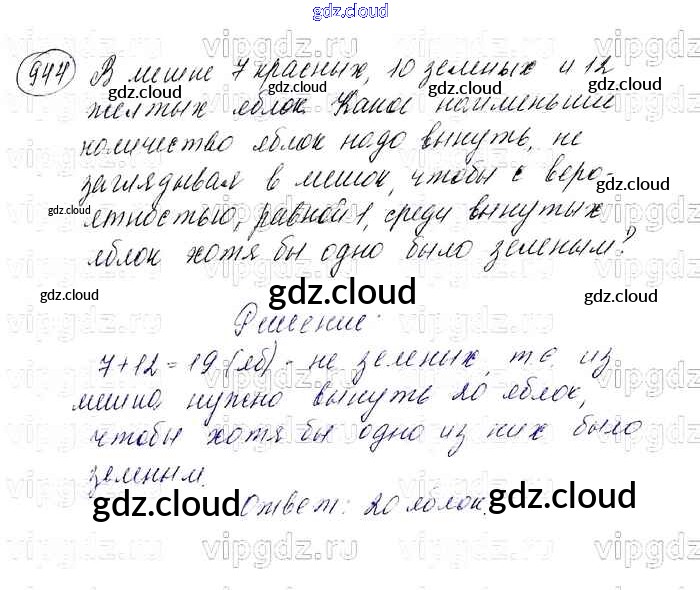 gdz.cloud
944 В мешке 7 красных, 10 зеленых и 12
желтых яблок. Какое наименьшее
количество яблок надо вынуть, не
заглядывая в мешок, чтобы с веро-
ятностью, равной 1, среди вынутых
яблок хотя бы одно было зеленым?
Решение:
7+12=19 (яб) - не зеленых, т.е. из
мешка нужно вынуть 20 яблок,
чтобы хотя бы одно из них было
зеленым.
Ответ: 20 яблок.
gdz.cloud
gdz.cloud
gdz.cloud
gdz.cloud
gdz.cloud
gdz.cloud
gdz.cloud
gdz.cloud
gdz.cloud
vipgdz.ru